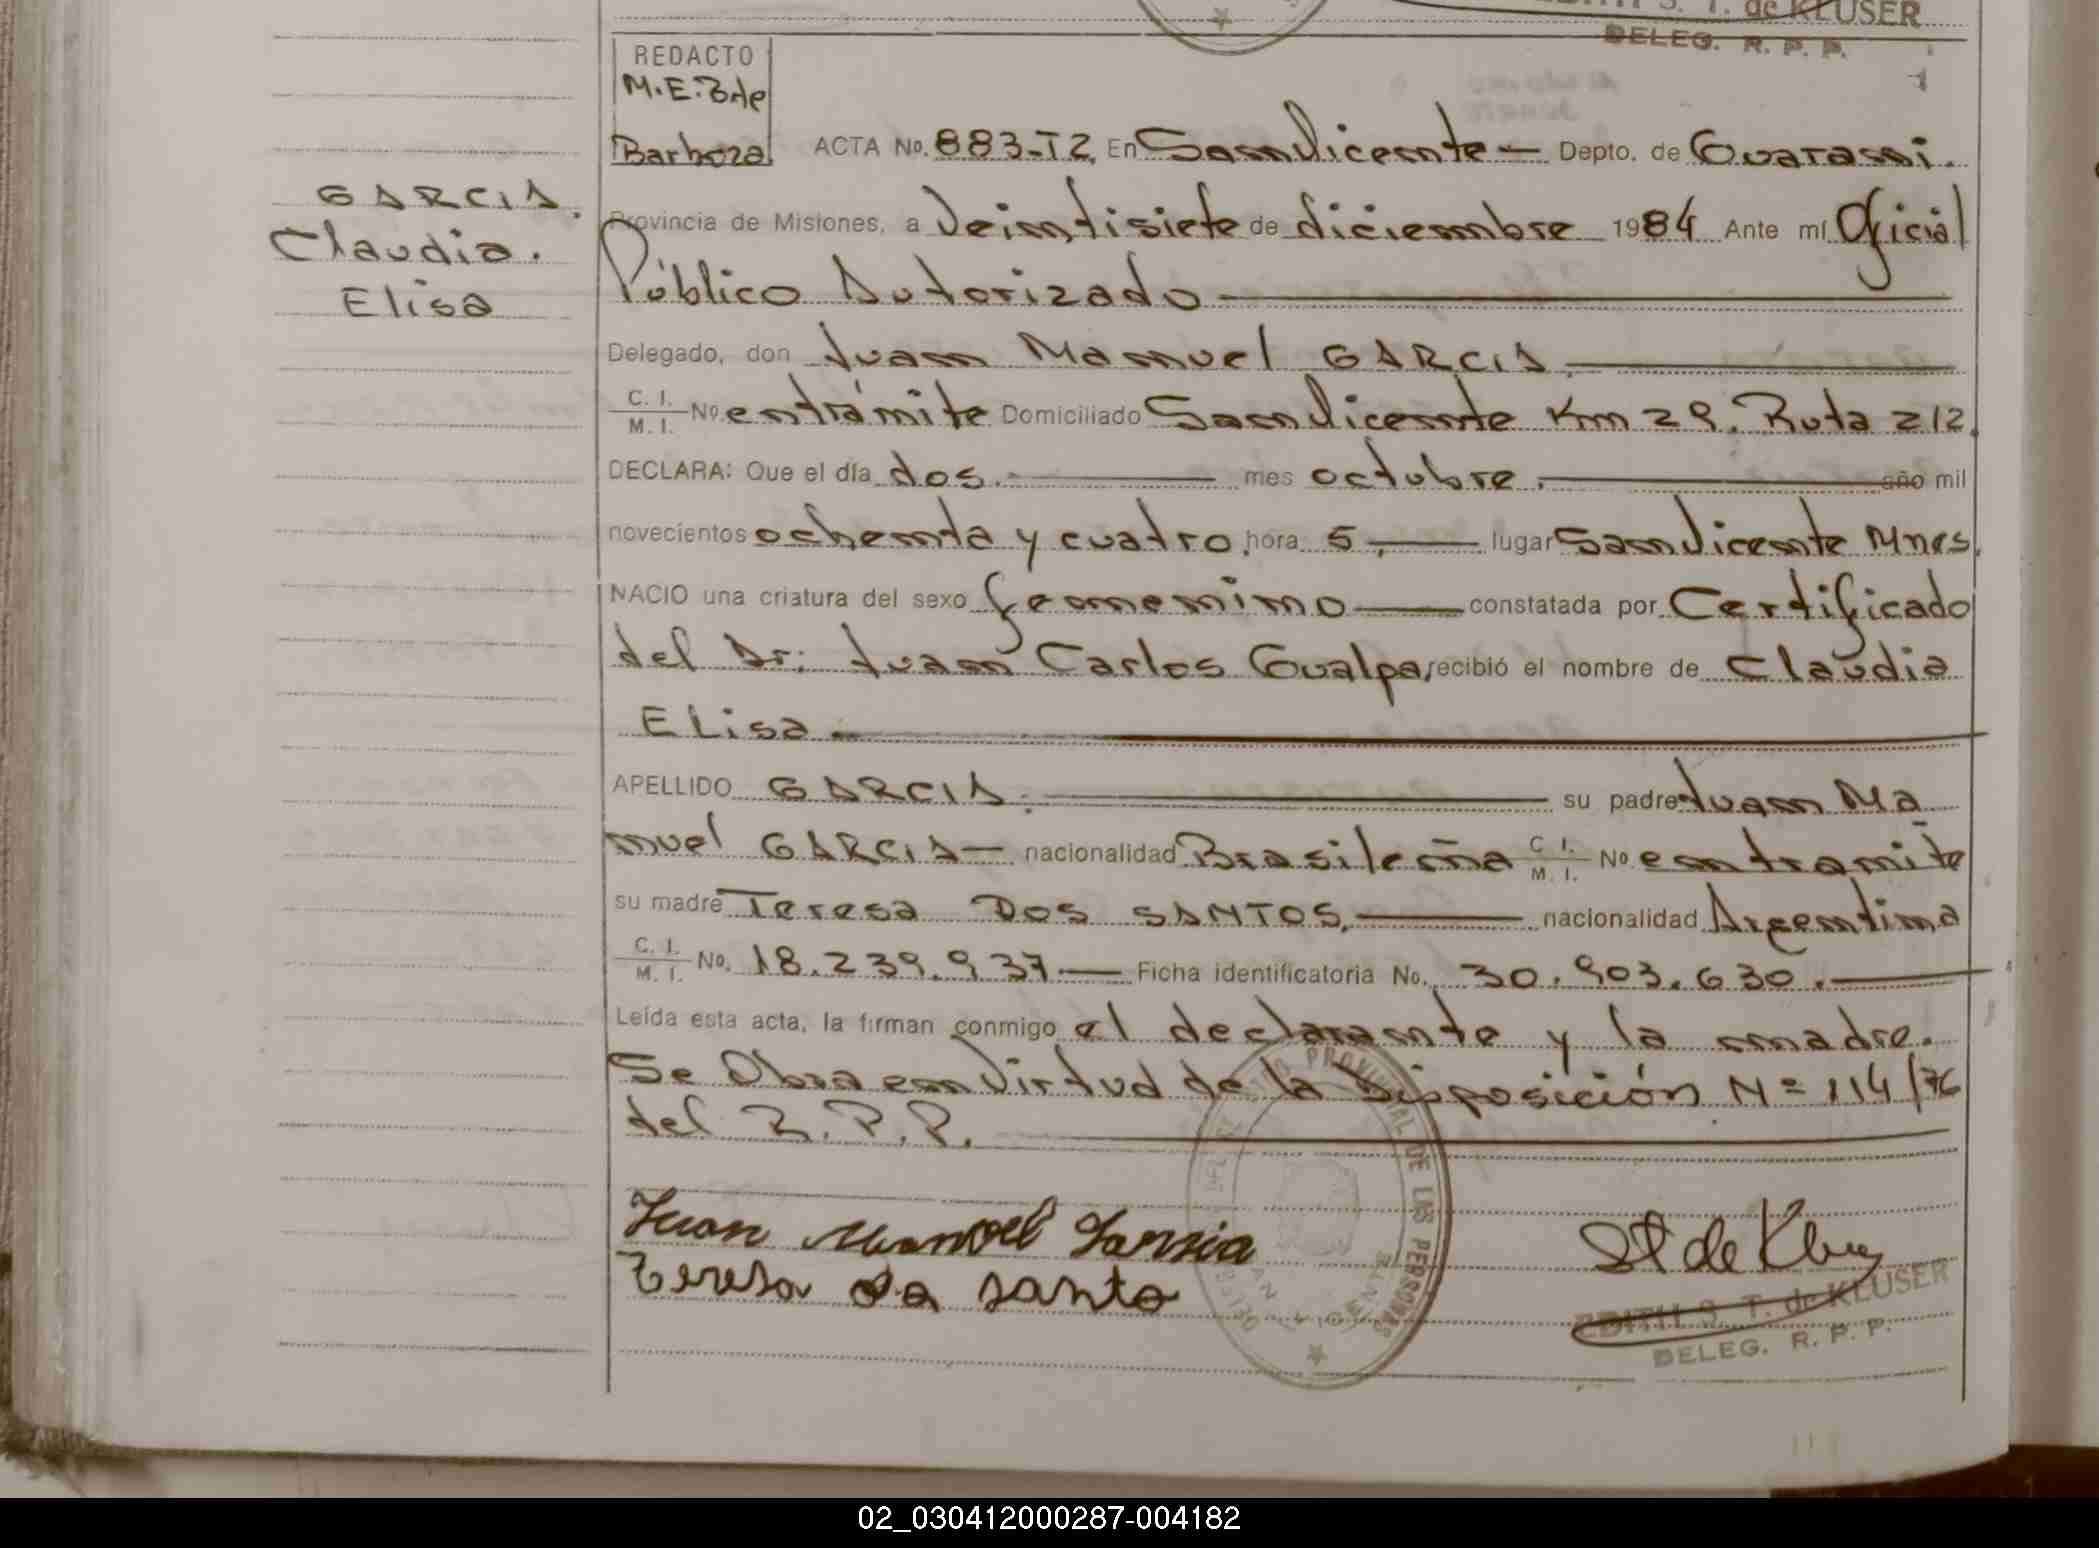 EDITH S. T. de KLUSER
DELEG. R. P. P.
REDACTO
M.E.B de
Barboza
ACTA No. 883-T2. En San Vicente — Depto. de Guaraní.
GARCIA.
Claudia.
Elisa
Provincia de Misiones, a Veintisiete de diciembre 1984 Ante mí Oficial
Público Autorizado
Delegado, don Juan Manuel GARCIA.
C. I.
M. I. No. en trámite Domiciliado San Vicente Km 29. Ruta 212.
DECLARA: Que el día dos. mes octubre. año mil
novecientos ochenta y cuatro, hora 5, lugar San Vicente Mnes.
NACIO una criatura del sexo femenino constatada por Certificado
del Dr: Juan Carlos Gualpa, recibió el nombre de Claudia
Elisa
APELLIDO GARCIA. su padre Juan Ma
nuel GARCIA — nacionalidad Brasileña C. I. M. I. No. en tramite
su madre Teresa DOS SANTOS, nacionalidad Argentina
C. I.
M. I. No. 18.239.937 — Ficha identificatoria No. 30.903.630.
Leída esta acta, la firman conmigo el declarante y la madre.
Se Obra en Virtud de la Disposición Nº 114/76
del R.P.P.
Juan Manoel Garsia
Teresa da santo
REGISTRO PROVINCIAL DE LAS PERSONAS
SAN VICENTE
EDITH S. T. de KLUSER
DELEG. R. P. P.
02_030412000287-004182